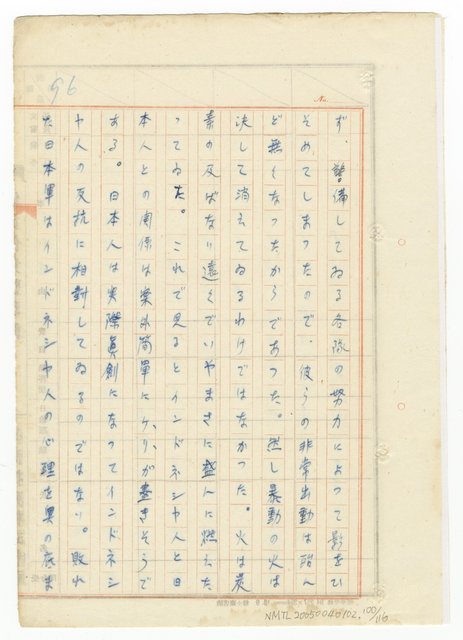 96
No.
ず、警備してゐる各隊の努力によって影をひ
そめてしまったので、彼らの非常出動は殆ん
ど無くなったからであった。然し暴動の火は
決して消えてゐるわけではなかった。火は炭
素の及ばない遠くでいやまさに盛んに燃えた
ってゐた。これで見るとインドネシヤ人と日
本人との関係は案外簡単にケリが盡きそうで
ある。日本人は実際真剣になってインドネシ
ヤ人の反抗に相対してゐるのではない。敗れ
た日本軍はインドネシヤ人の心理を奥の底ま
NMTL 20050040102. 100/116